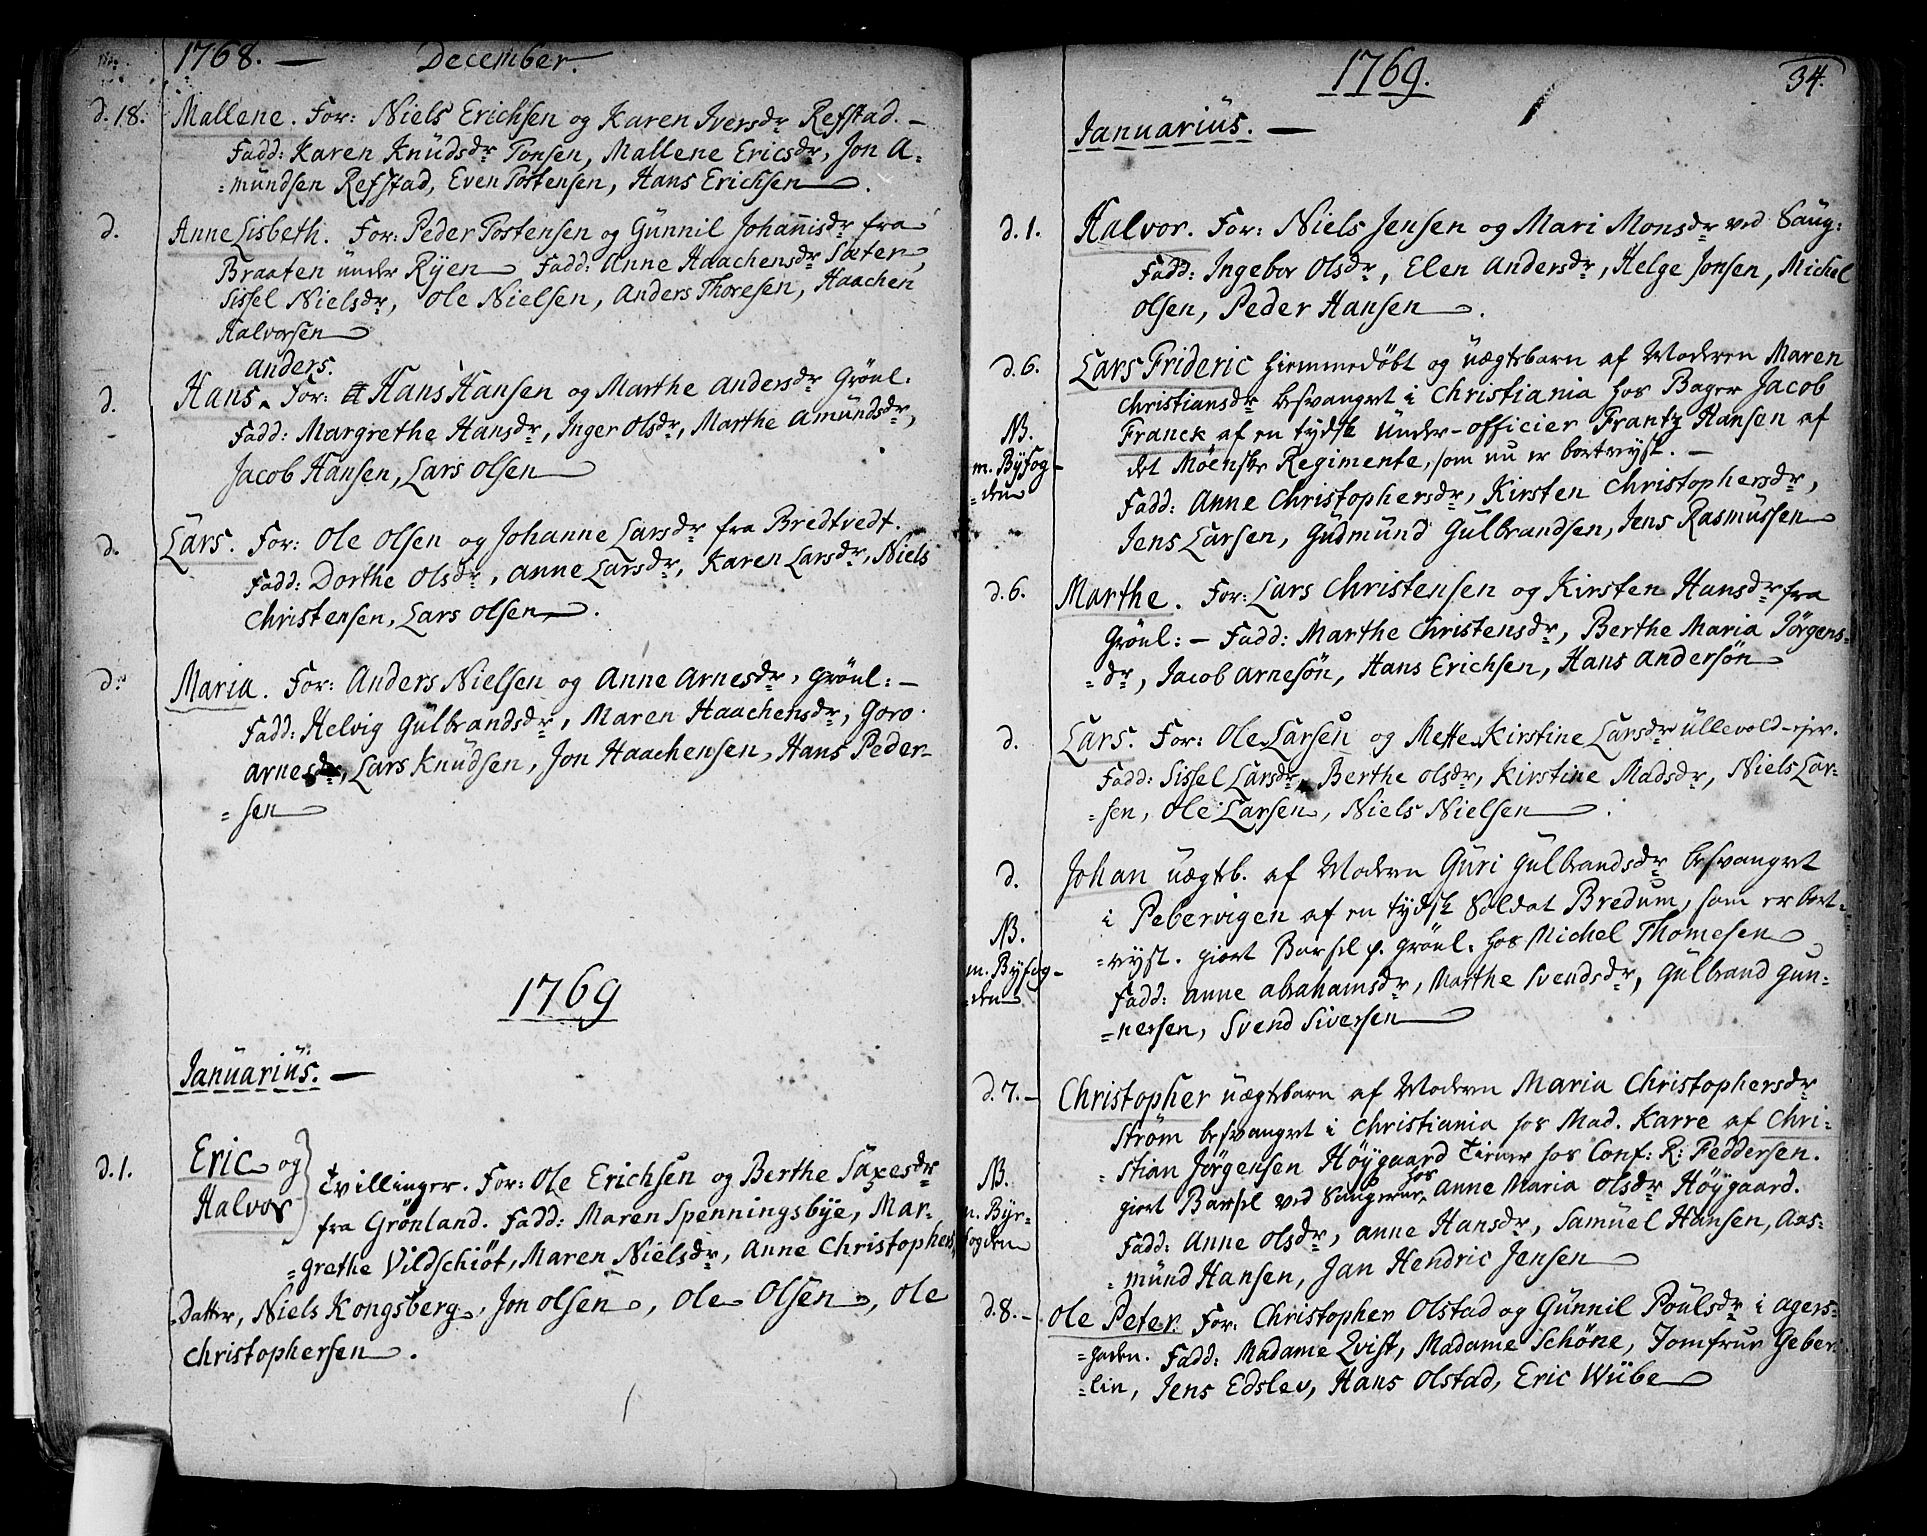 1768. — December.
d. 18. Mallene. For: Niels Erichsen og Karen Iversdr Refstad. —
Fadd: Karen Knüdsdr Tonsen, Mallene Ericsdr, Jon A=
=mündsen Refstad, Even Tostensen, Hans Erichsen.
d. Anne Lisbeth. For: Peder Tostensen og Günnil Johannisdr fra
Braaten ünder Rÿen Fadd: Anne Haachensdr Sæter,
Sissel Nielsdr, Ole Nielsen, Anders Thoresen, Haachen
Halvorsen
Anders.
d. Hans. For: Hans Hansen og Marthe Andersdr Grönl.
Fadd: Margrethe Hansdr, Inger Olsdr, Marthe Amündsdr,
Jacob Hansen, Lars Olsen
d. Lars. For: Ole Olsen og Johanne Larsdr fra Bredtvedt.
Fadd: Dorthe Olsdr, Anne Larsdr, Karen Larsdr, Niels
Christensen, Lars Olsen.
d. Maria. For: Anders Nielsen og Anne Arnesdr, Grönl: —
Fadd: Helvig Gülbrandsdr, Maren Haachensdr, Goro
Arnesdr, Lars Knüdsen, Jon Haachensen, Hans Peder=
=sen
1769
Januariüs. —
d. 1. Eric og
Halvor
Tvillinger. For: Ole Erichsen og Berthe Saxesdr
fra Grönland. Fadd: Maren Spenningsbÿe, Mar=
=grethe Vildschiöt, Maren Nielsdr, Anne Christophers
Datter, Niels Kongsberg, Jon Olsen, Ole Olsen, Ole
Christophersen.
1769. 34.
Januariüs. —
d. 1. Halvor. For: Niels Jensen og Mari Monsdr ved Saug:
Fadd: Ingebor Olsdr, Elen Andersdr, Helge Jonsen, Michel
Olsen, Peder Hansen.
d. 6. Lars Frideric hiemmedöbt og uægtebarn af Moderen Maren
Christiansdr besvangret i Christiania hos Bager Jacob
NB. Franck af en tÿdsk Under-officier Frantz Hansen af
m. Bÿfog= det Möenske Regimente, som nu er bortreyst. —
=den Fadd: Anne Christophersdr, Kirsten Christophersdr,
Jens Larsen, Güdmünd Gülbrandsen, Jens Rasmüssen
d. 6. Marthe. For: Lars Christensen og Kirsten Hansdr fra
Grönl: — Fadd: Marthe Christensdr, Berthe Maria Jörgens=
=dr, Jacob Arnesön, Hans Erichsen, Hans Andersön
d. Lars. For: Ole Larsen og Mette Kirstine Larsdr Üllevold-ejer.
Fadd: Sissel Larsdr, Berthe Olsdr, Kirstine Madsdr, Niels Lar=
=sen, Ole Larsen, Niels Nielsen.
d. Johan uægteb. af Moderen Guri Gülbrandsdr besvangret
i Pebervigen af en tÿdsk Soldat Bredum, som er bort=
NB. =reyst. giort Barsel p. Grönl. hos Michel Thomesen
m. Bÿfog= Fadd: Anne Abrahamsdr, Marthe Svendsdr, Gülbrand Gun=
=den =nersen, Svend Siversen
d. 7. — Christopher uægtebarn af Moderen Maria Christophersdr
Ström besvangret i Christiania hos Mad. Karre af Chri=
NB. =stian Jörgensen Höygaard Tiener hos Conf: R: Peddersen.
m. Bÿe= giort Barsel ved Saugerne hos Anne Maria Olsdr Höygaard.
fogden Fadd: Anne Olsdr, Anne Hansdr, Samuel Hansen, Aas=
=münd Hansen, Jan Hendric Jensen
d. 8. — Ole Peter. For: Christopher Olstad og Günnil Poülsdr i Agers=
=gaden. Fadd: Madame Qvist, Madame Schöne, Jomfrue Geber=
=lin, Jens Edslev, Hans Olstad, Eric Wübe